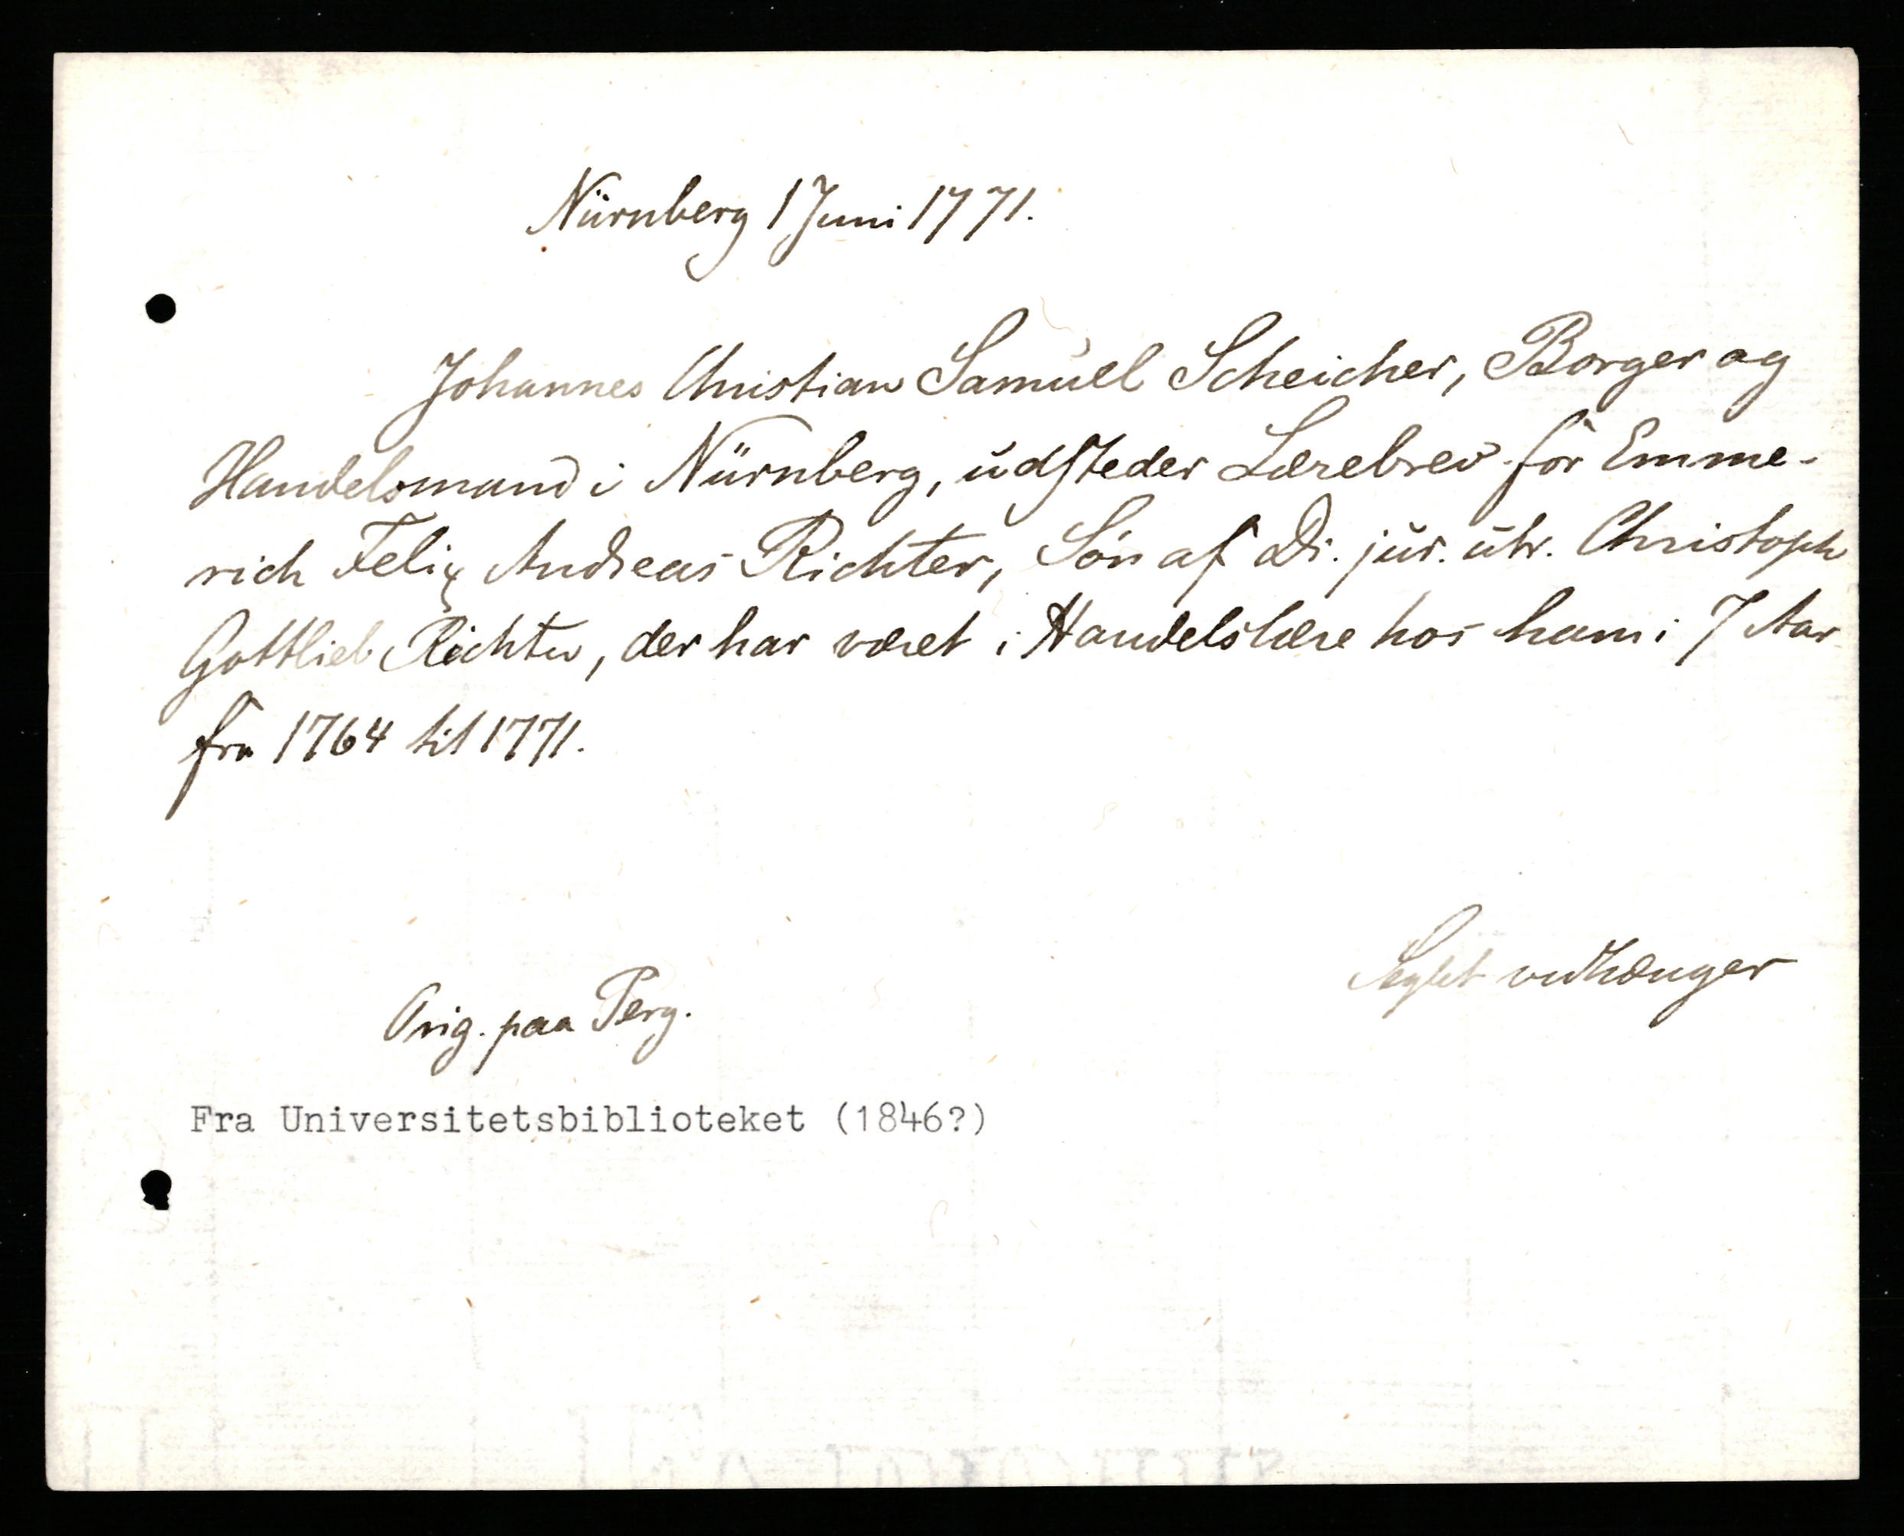 Nürnberg 1 Juni 1771.
Johannes Christian Samuel Scheicher, Borger og
Handelsmand i Nürnberg, udsteder Lærebrev for Emme-
rich Felix Andreas Richter, Søn af Dr. jur. utr. Christoph
Gottlieb Richter, der har været i Handelslære hos ham i 7 Aar
fra 1764 til 1771.
Seglet vedhænger
Orig. paa Perg.
Fra Universitetsbiblioteket (1846?)